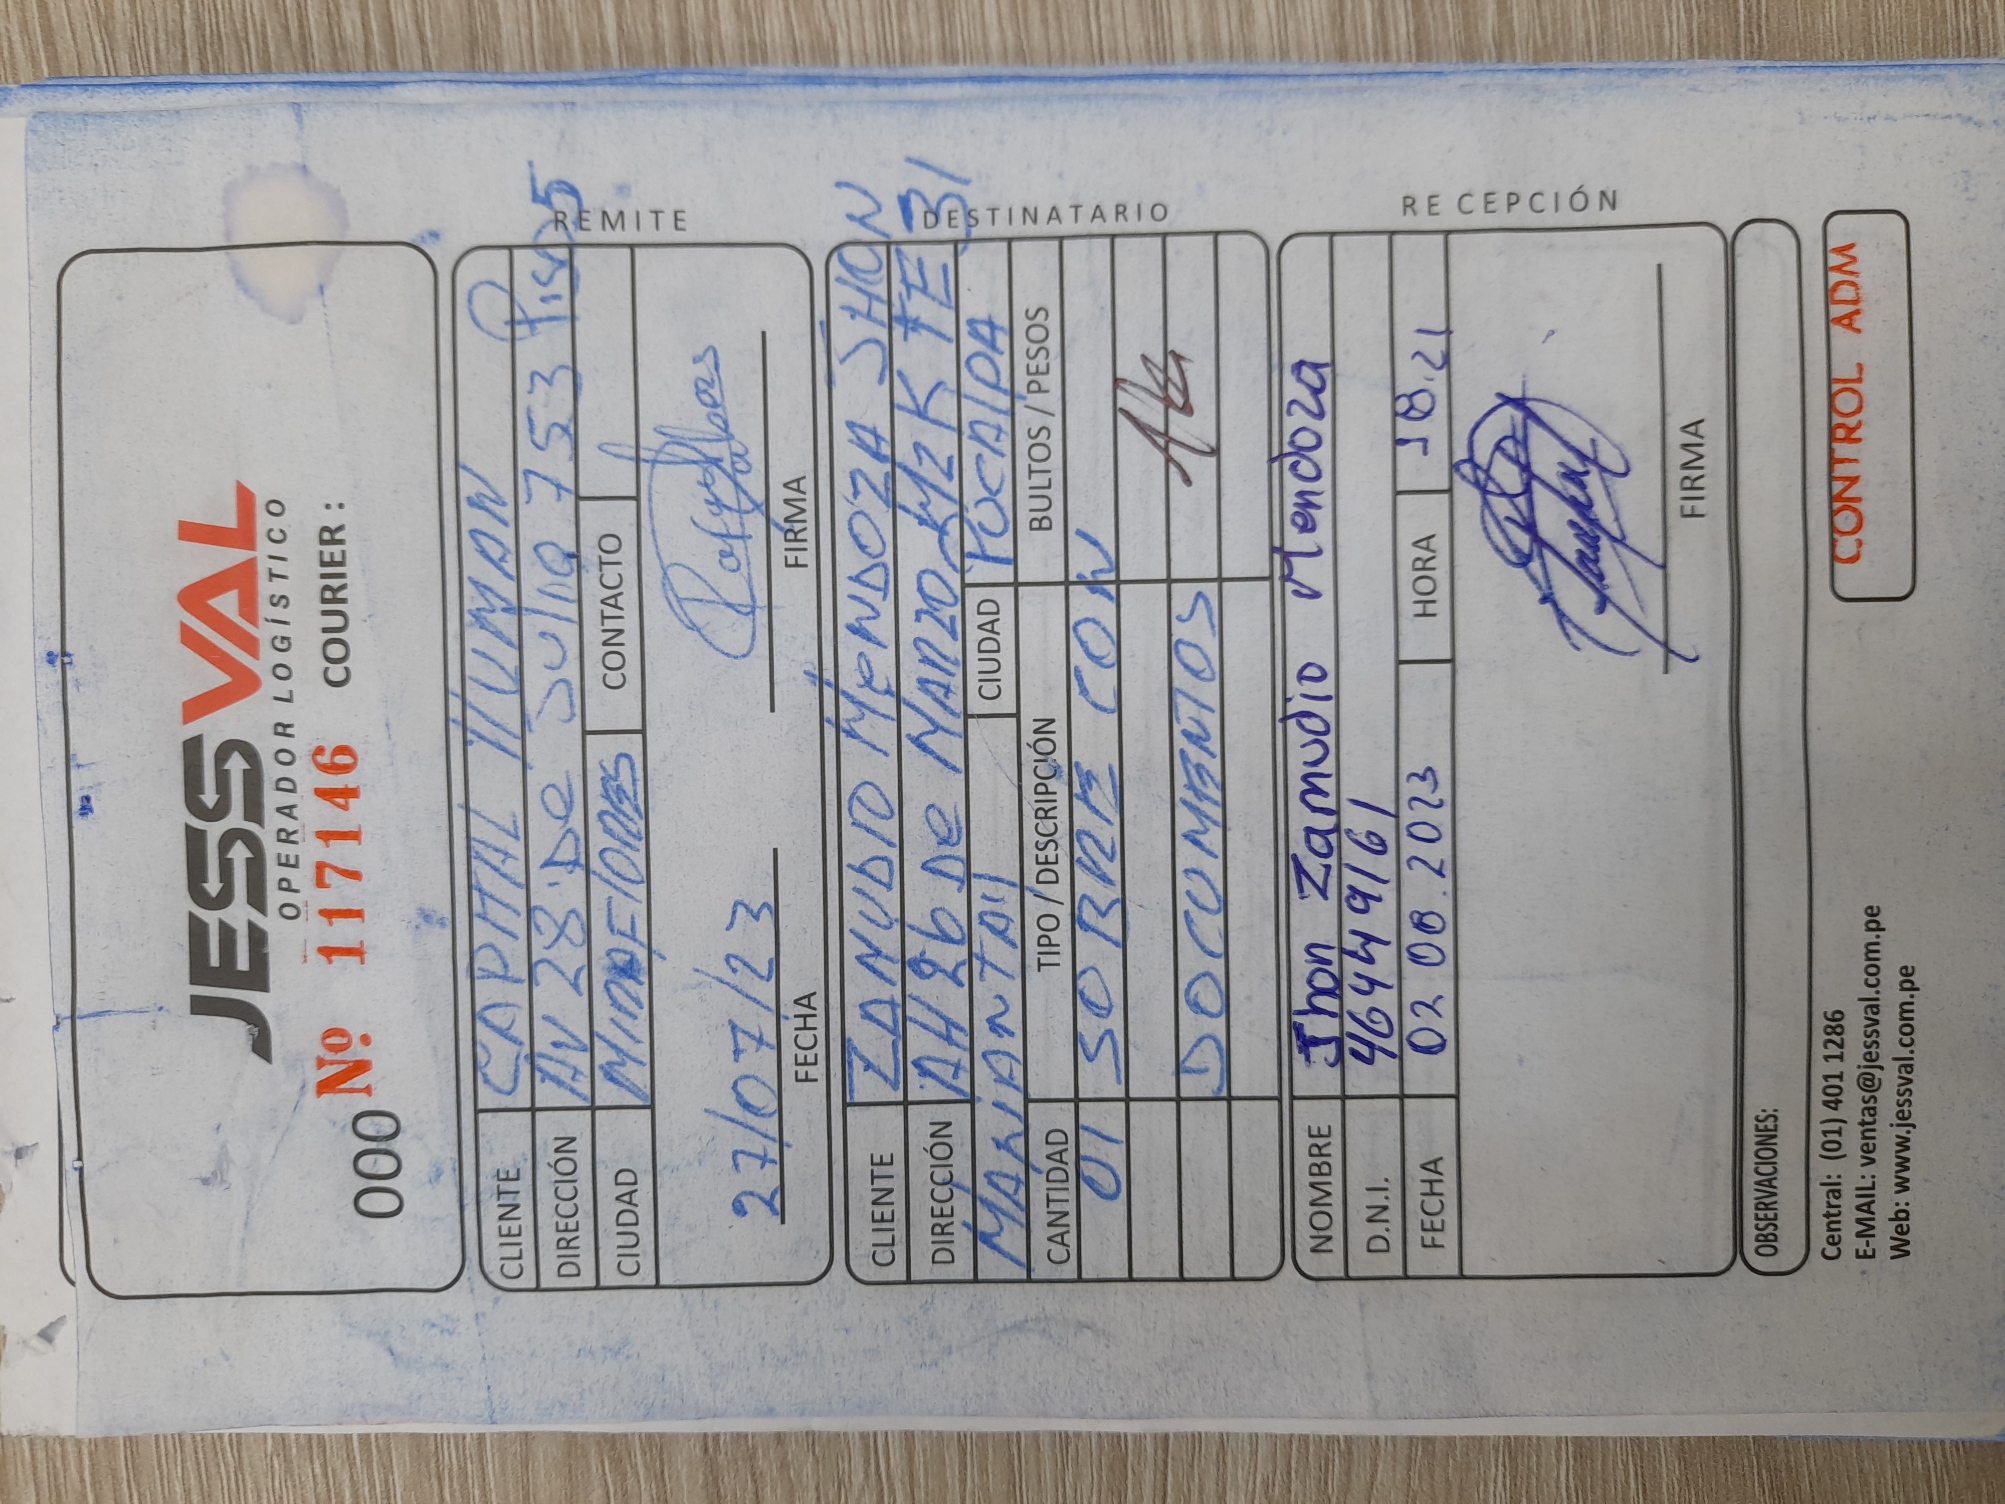 JESSVAL
OPERADOR LOGÍSTICO
000 Nº 117146 COURIER :
CLIENTE CAPITAL HUMAN
DIRECCIÓN AV 28 De Julio 753 Piso 5
CIUDAD MIRAFLORES CONTACTO
REMITE
27/07/23
FECHA FIRMA
CLIENTE ZANUDIO MENDOZA JHON
DIRECCIÓN AH 26 De MARZO MZ K 31
MANANTAY CIUDAD PUCALPA
CANTIDAD TIPO / DESCRIPCIÓN BULTOS / PESOS
01 SOBRE CON
DOCUMENTOS
DESTINATARIO
NOMBRE Jhon Zamudio Mendoza
D.N.I. 46449161
FECHA 02 08.2023 HORA 18.21
RECEPCIÓN
FIRMA
OBSERVACIONES:
Central: (01) 401 1286
E-MAIL: ventas@jessval.com.pe
Web: www.jessval.com.pe
CONTROL ADM